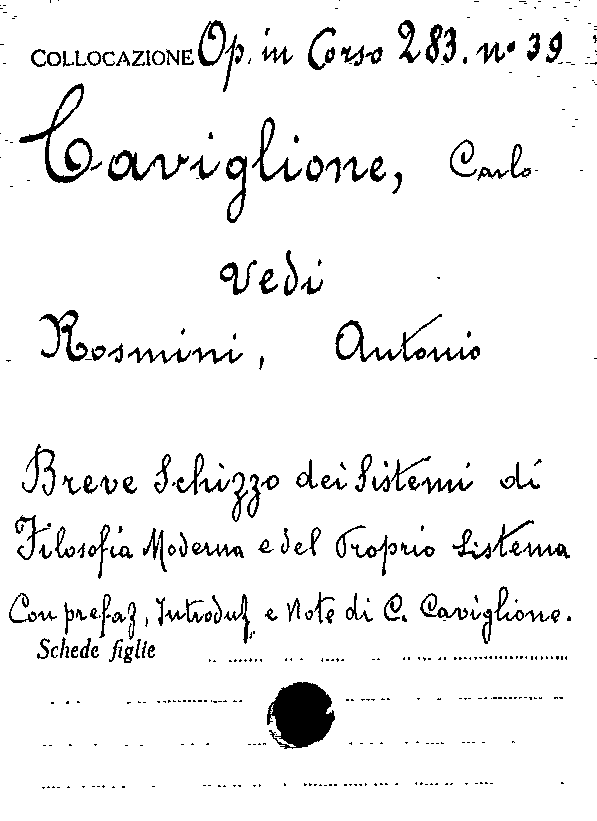 COLLOCAZIONE Op. in Corso 283. nº 39
Caviglione, Carlo
Vedi
Rosmini, Antonio
Breve Schizzo dei Sistemi di
Filosofia Moderna e del Proprio Sistema
Con prefaz, Introduz, e Note di C. Caviglione.
Schede figlie